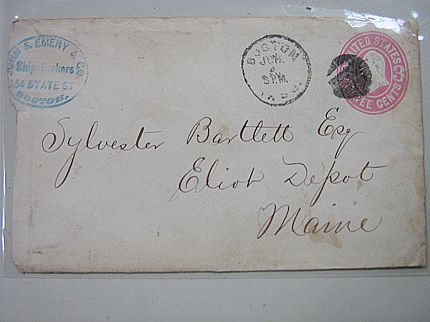 JOHN S. EMERY & CO.
Ship Brokers
STATE ST
BOSTON.
BOSTON
MASS.
UNITED STATES
THREE CENTS
Sylvester Bartlett Esq
Eliot Depot
Maine